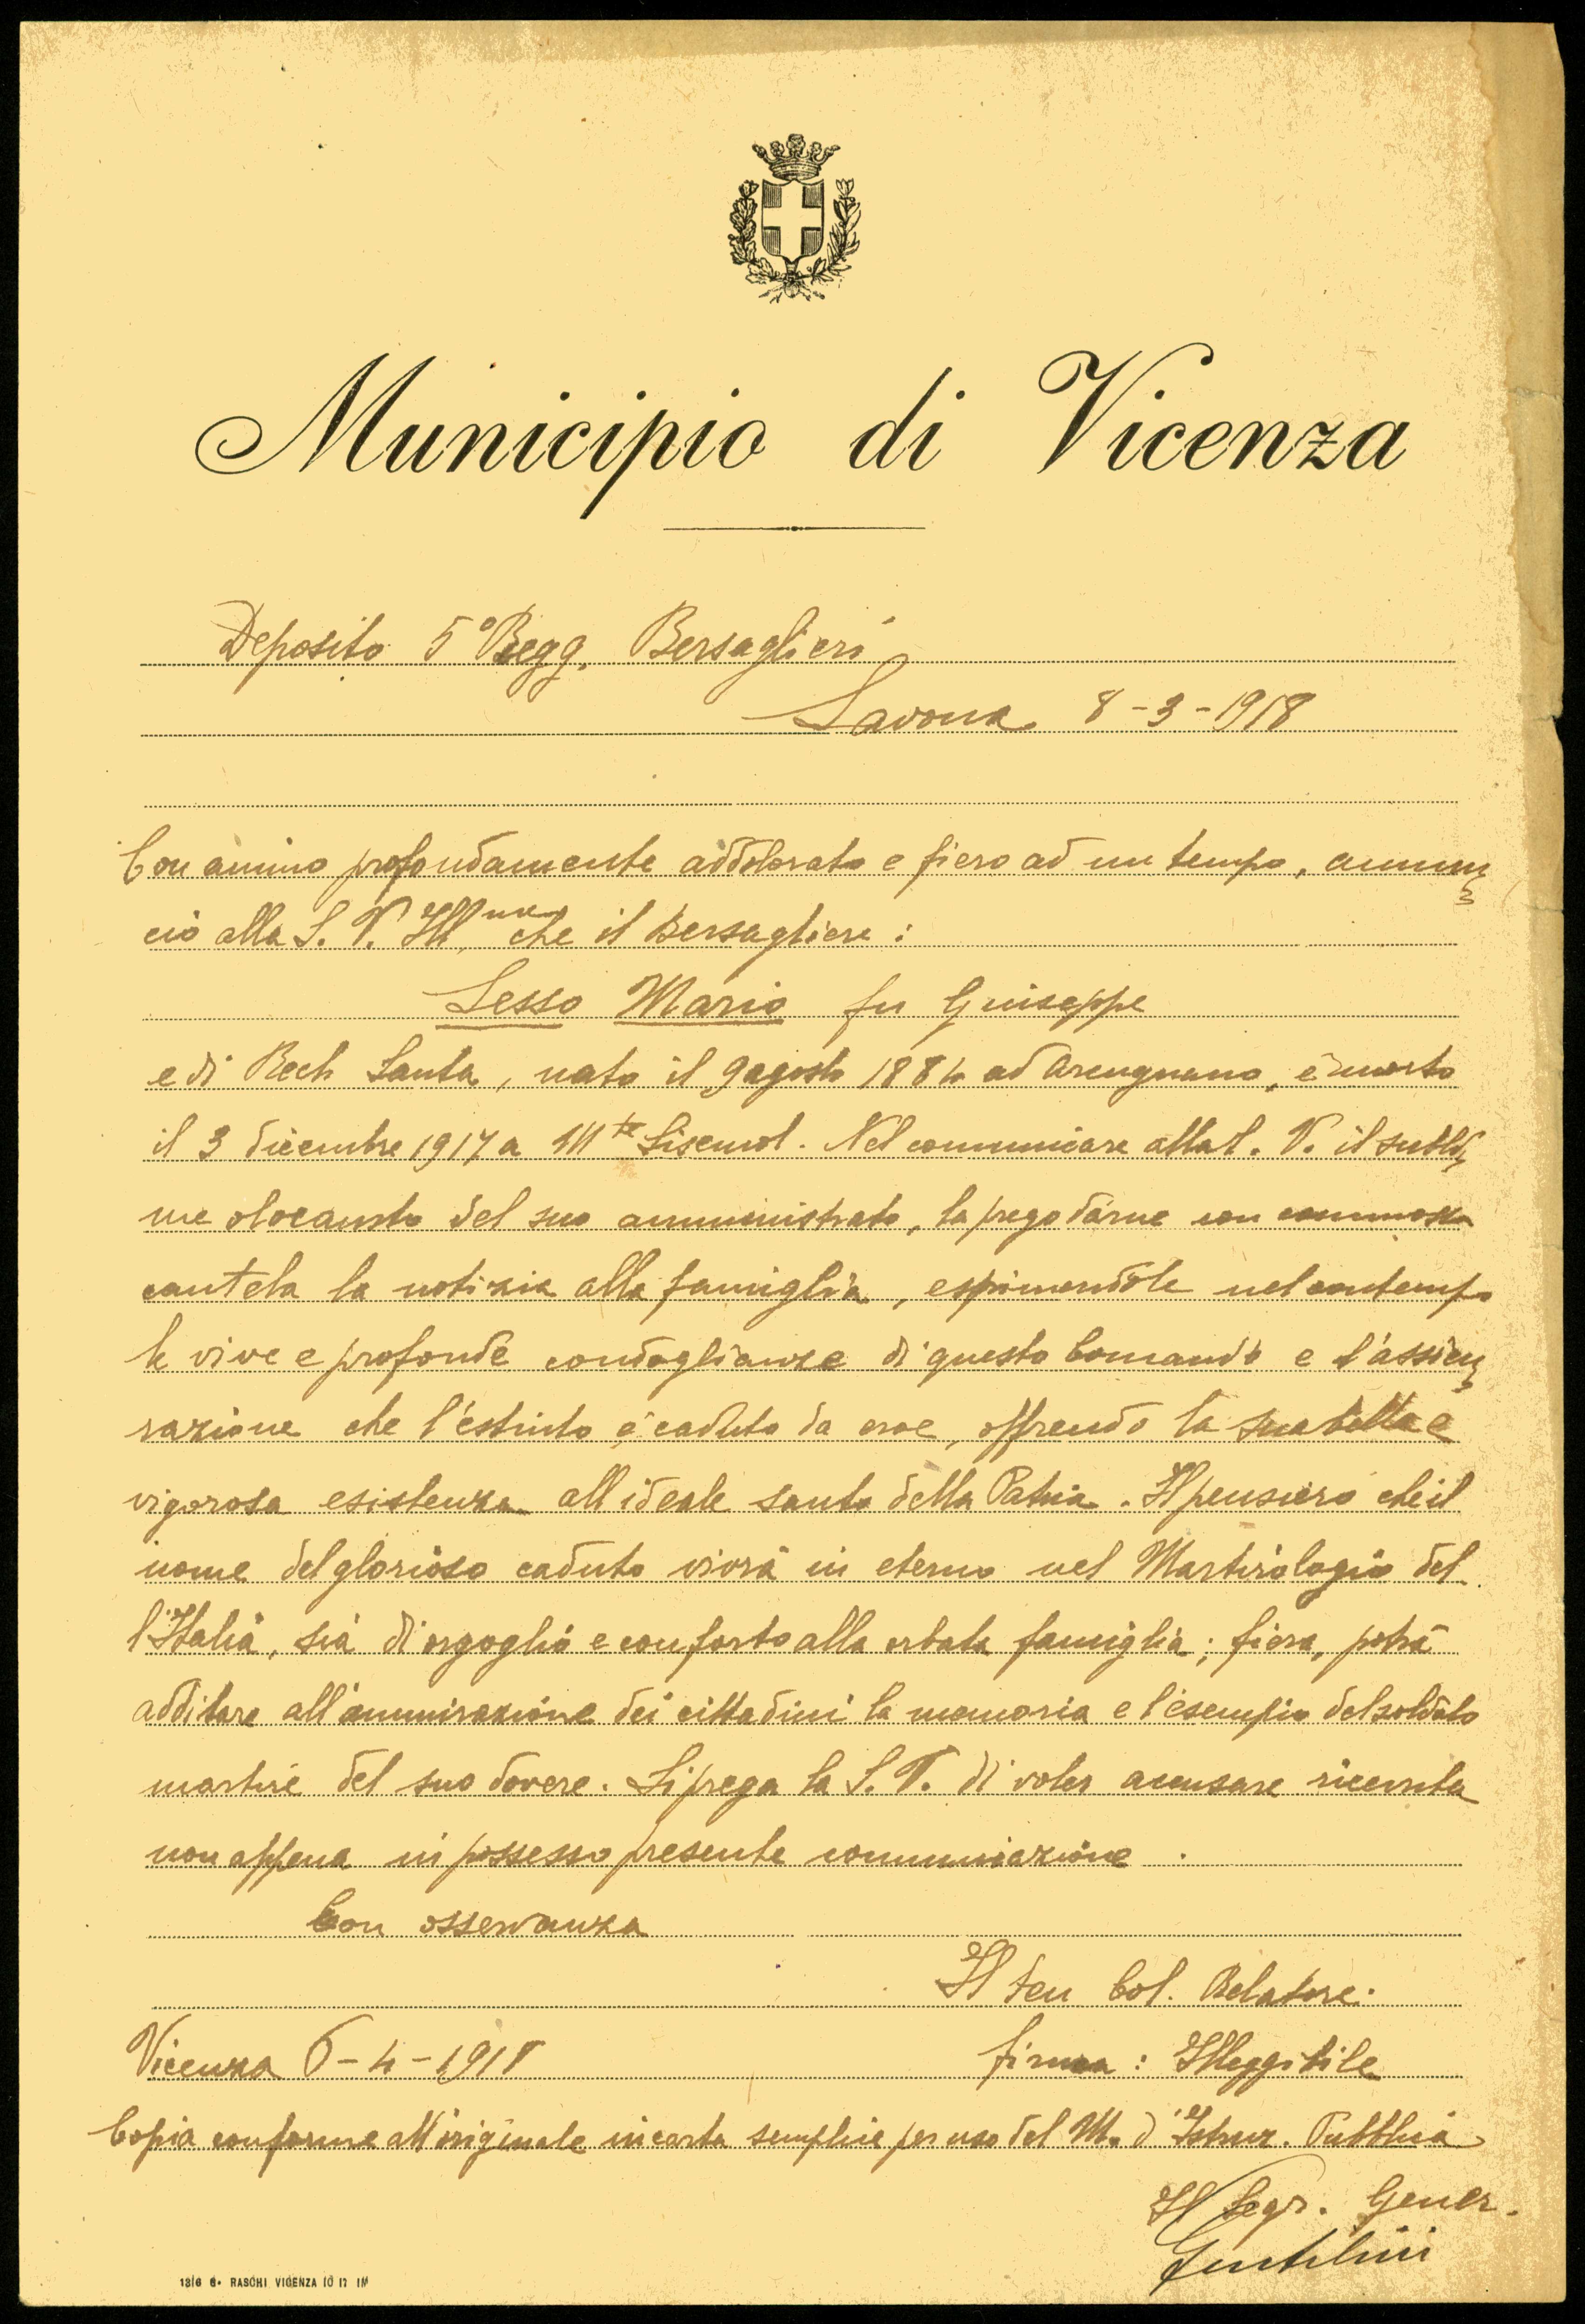 Municipio di Vicenza
Deposito 5° Regg. Bersaglieri
Savona 8-3-1918
Con animo profondamente addolorato e fiero ad un tempo, annun
cio alla S. V. Ill.ma che il Bersagliere:
Sesso Mario fu Giuseppe
e di Rech Santa, nato il 9 agosto 1884 ad Arcugnano, è morto
il 3 dicembre 1917 a Mte Sisemol. Nel comunicare alla S. V. il subli
me olocausto del suo amministrato, la prego darne con commossa
cautela la notizia alla famiglia, esprimendole nel contempo
le vive e profonde condoglianze di questo Comando e l'assicu
razione che l'estinto è caduto da eroe, offrendo la sua bella e
vigorosa esistenza all'ideale santo della Patria. Il pensiero che il
nome del glorioso caduto vivrà in eterno nel Martirologio del
l'Italia, sia di orgoglio e conforto alla orbata famiglia; fiera, potrà
additare all'ammirazione dei cittadini la memoria e l'esempio del soldato
martire del suo dovere. Si prega la S. V. di voler accusare ricevuta
non appena in possesso presente comunicazione.
Con osservanza
Il Ten Col. Relatore.
Vicenza 6-4-1918 firma: Illeggibile
Copia conforme all'originale in carta semplice per uso del M. d'Istruz. Pubblica
Il Segr. Gener.
Gentilini
RASCHI VICENZA